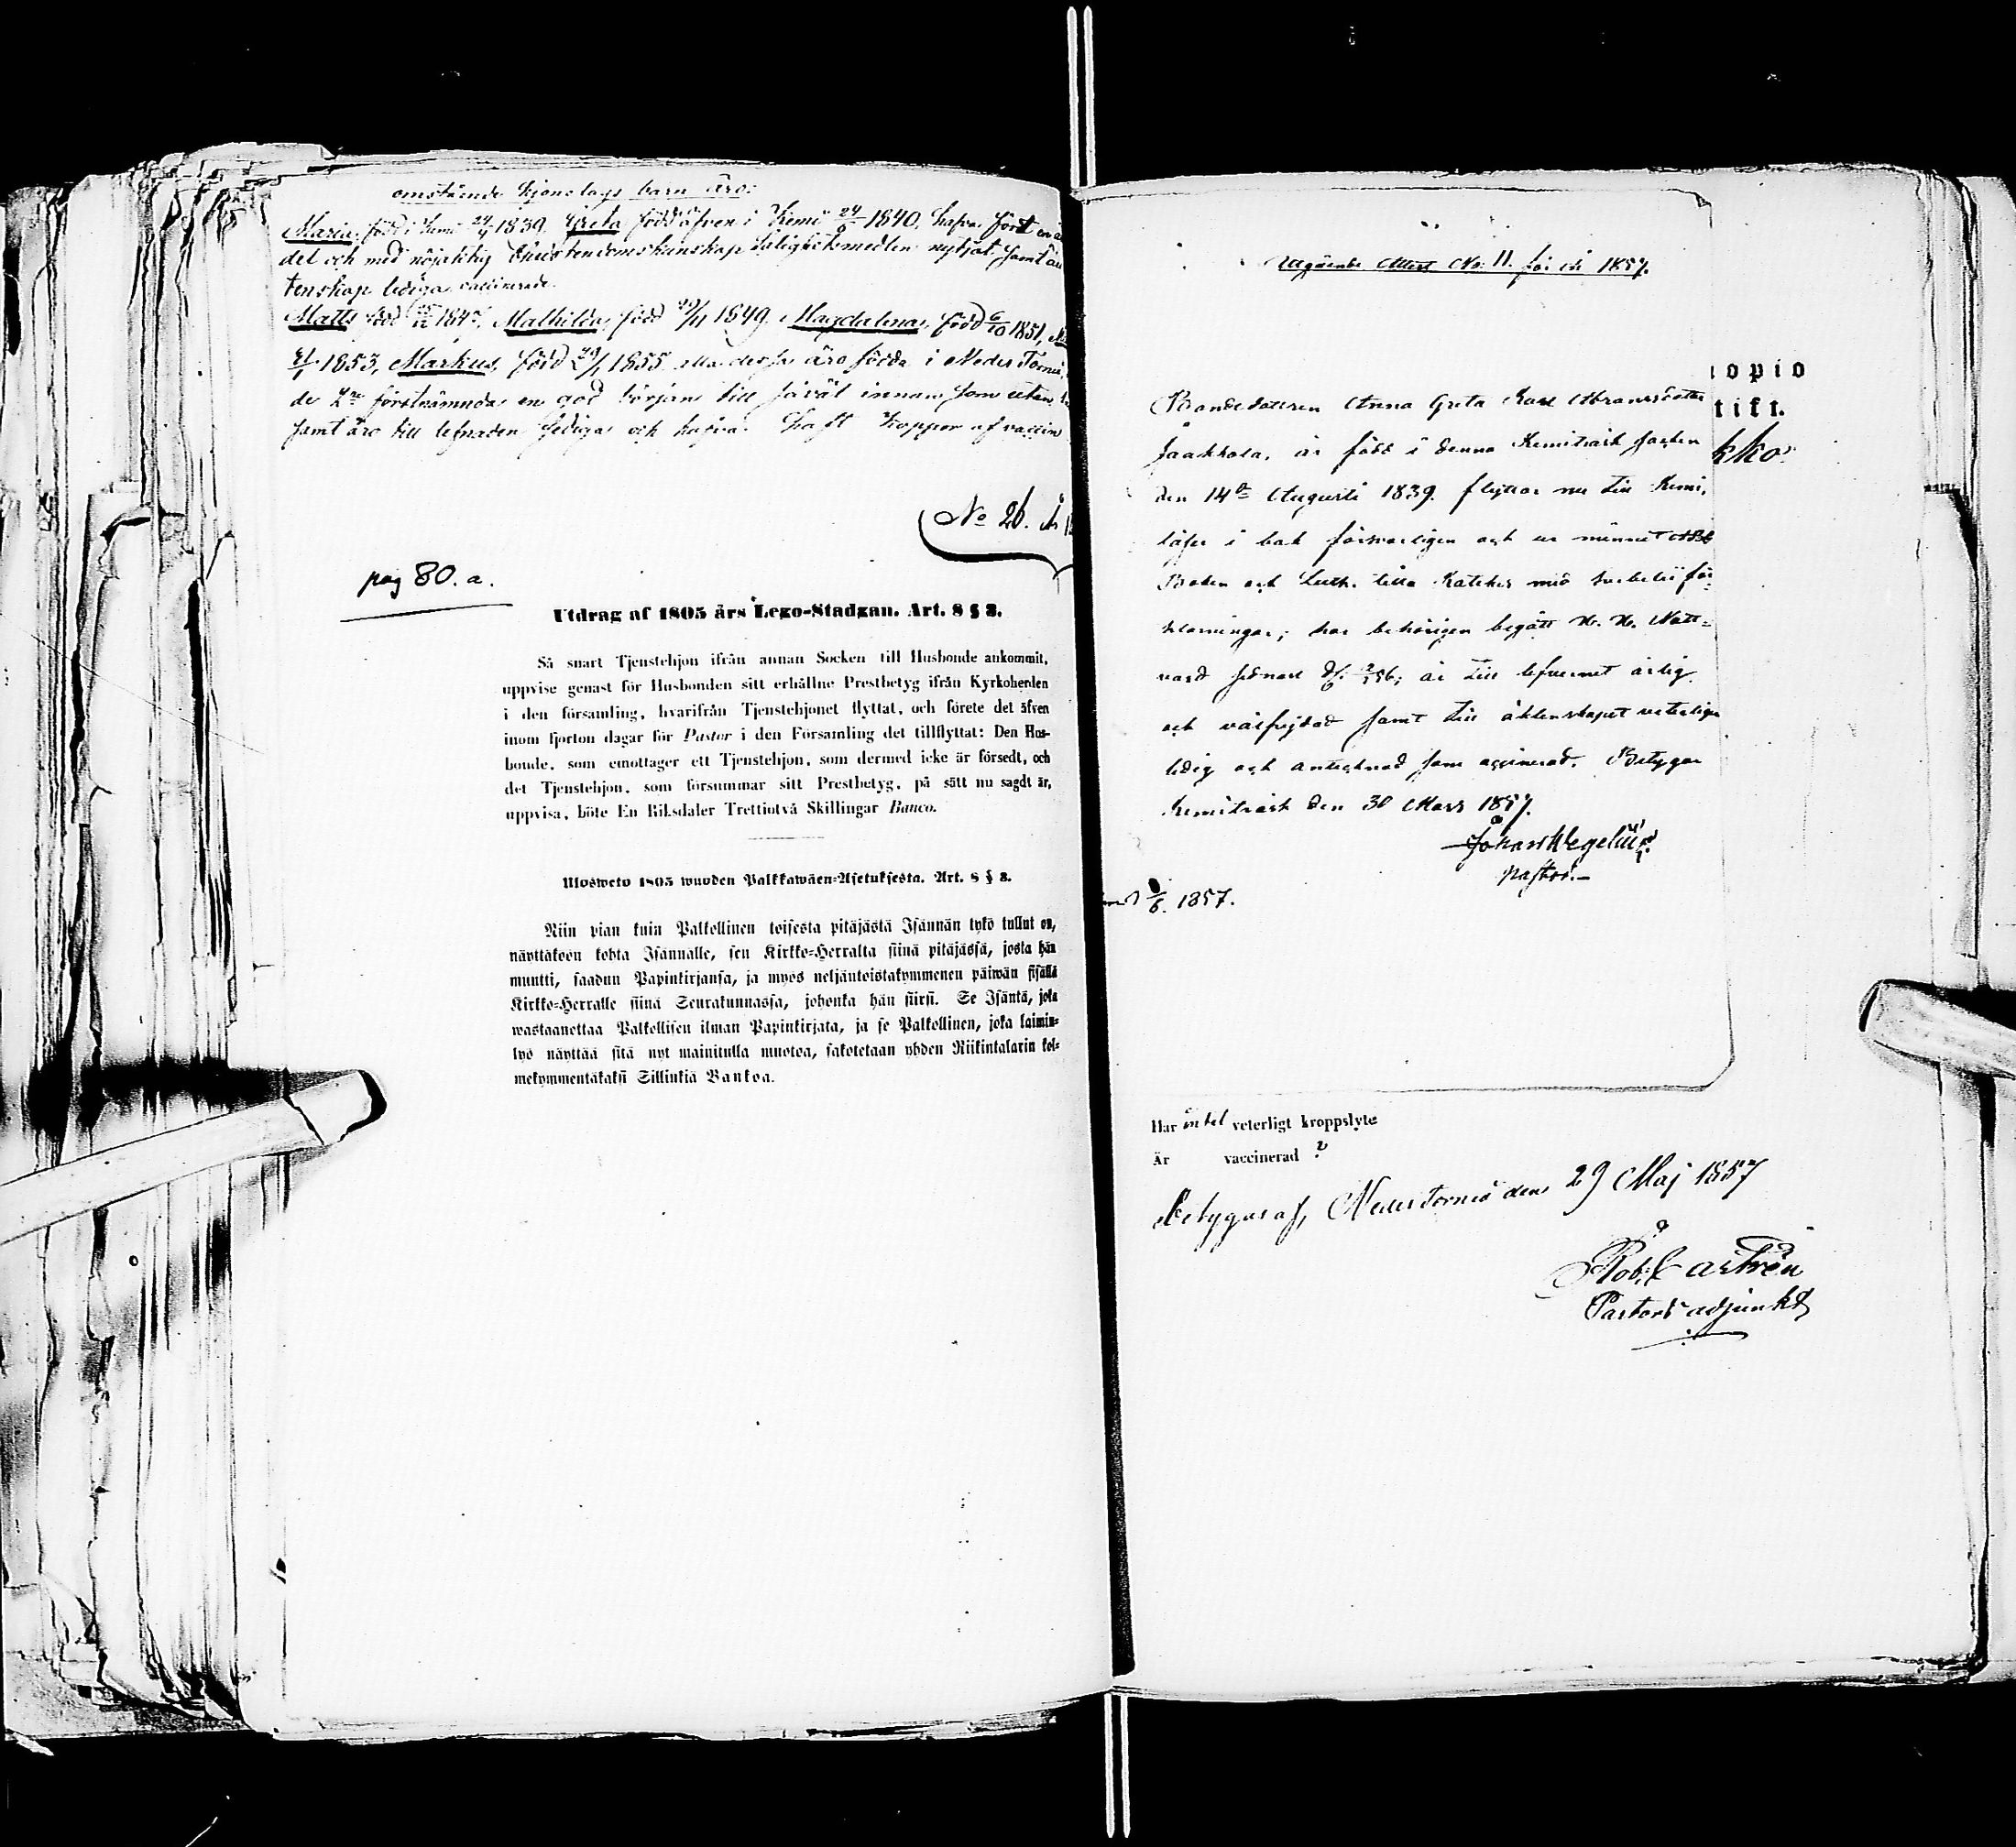 omstående hjonelags barn äro:
Maria, född i Kemi 24/4 1839, Greta född äfven i Kemi 24/6 1840, hafva fört en
del och med nöjaktig Christendomskunskap Salighetsmedlen nytjat, samt
tenskap lediga, vaccinerade.
Matts född 184 Mathilda, född 29/11 1849, Magdalena, född 6/10 1851,
21/1 1853, Markus, född 29/1 1855 alla dessa äro födda i Neder Torneå,
de 2ne förstnämnda en god början till såväl innan som utan
samt äro till lefnaden sediga och hafva haft koppor af vaccin
No 26. år
pag 80. a.
Utdrag af 1805 års Lego-Stadgan. Art. 8 § 3.
Så snart Tjenstehjon ifrån annan Socken till Husbonde ankommit,
uppvise genast för Husbonden sitt erhållne Prestbetyg ifrån Kyrkoherden
i den församling, hvarifrån Tjenstehjonet flyttat, och förete det äfven
inom fjorton dagar för Pastor i den Församling det tillflyttat: Den Hus-
bonde, som emottager ett Tjenstehjon, som dermed icke är försedt, och
det Tjenstehjon, som försummar sitt Prestbetyg, på sätt nu sagdt är,
uppvisa, böte En Riksdaler Trettiotvå Skillingar Banco.
Ulosweto 1805 wuoden Palkkawäen-Asetuksesta. Art. 8 § 3.
Niin pian kuin Palkollinen toisesta pitäjästä Isännän tykö tullut on,
näyttäköön kohta Isännälle, sen Kirkko-Herralta siinä pitäjässä, josta hän
muutti, saadun Papinkirjansa, ja myös neljäntoistakymmenen päiwän sisällä
Kirkko-Herralle siinä Seurakunnassa, johonka hän siirsi. Se Isäntä, joka
wastaanottaa Palkollisen ilman Papinkirjata, ja se Palkollinen, joka laimin-
lyö näyttää sitä nyt mainitulla muotoa, sakotetaan yhden Riikintalarin kol-
mekymmentäkaksi Sillinkiä Bankoa.
Utgående Attest No: 11. för år 1857.
opio
tift.
kko
Bondedottren Anna Greta Karl Abramsdotter
Jaakkola, är född i denna Kemiträsk socken
den 14de Augusti 1839. flyttar nu till Kemi,
läser i bok försvarligen och ur minnet ABC
Boken och Luth. lilla Kateches med Svebelii för-
klaringar; har behörigen begått H. H. Natt-
vard senast d. 56; är till lefvernet ärlig
och välfrejdad samt till äktenskapet veterligen
ledig och antecknad som vaccinerad. Betygar
Kemiträsk den 30 Mars 1857.
Johan Wegelius
Pastor.
/6. 1857.
Har intet veterligt kroppslyte
Är vaccinerad
Betygas af, Neder Torneå den 29 Maj 1857
Rob. Castrén
Pastors adjunkt